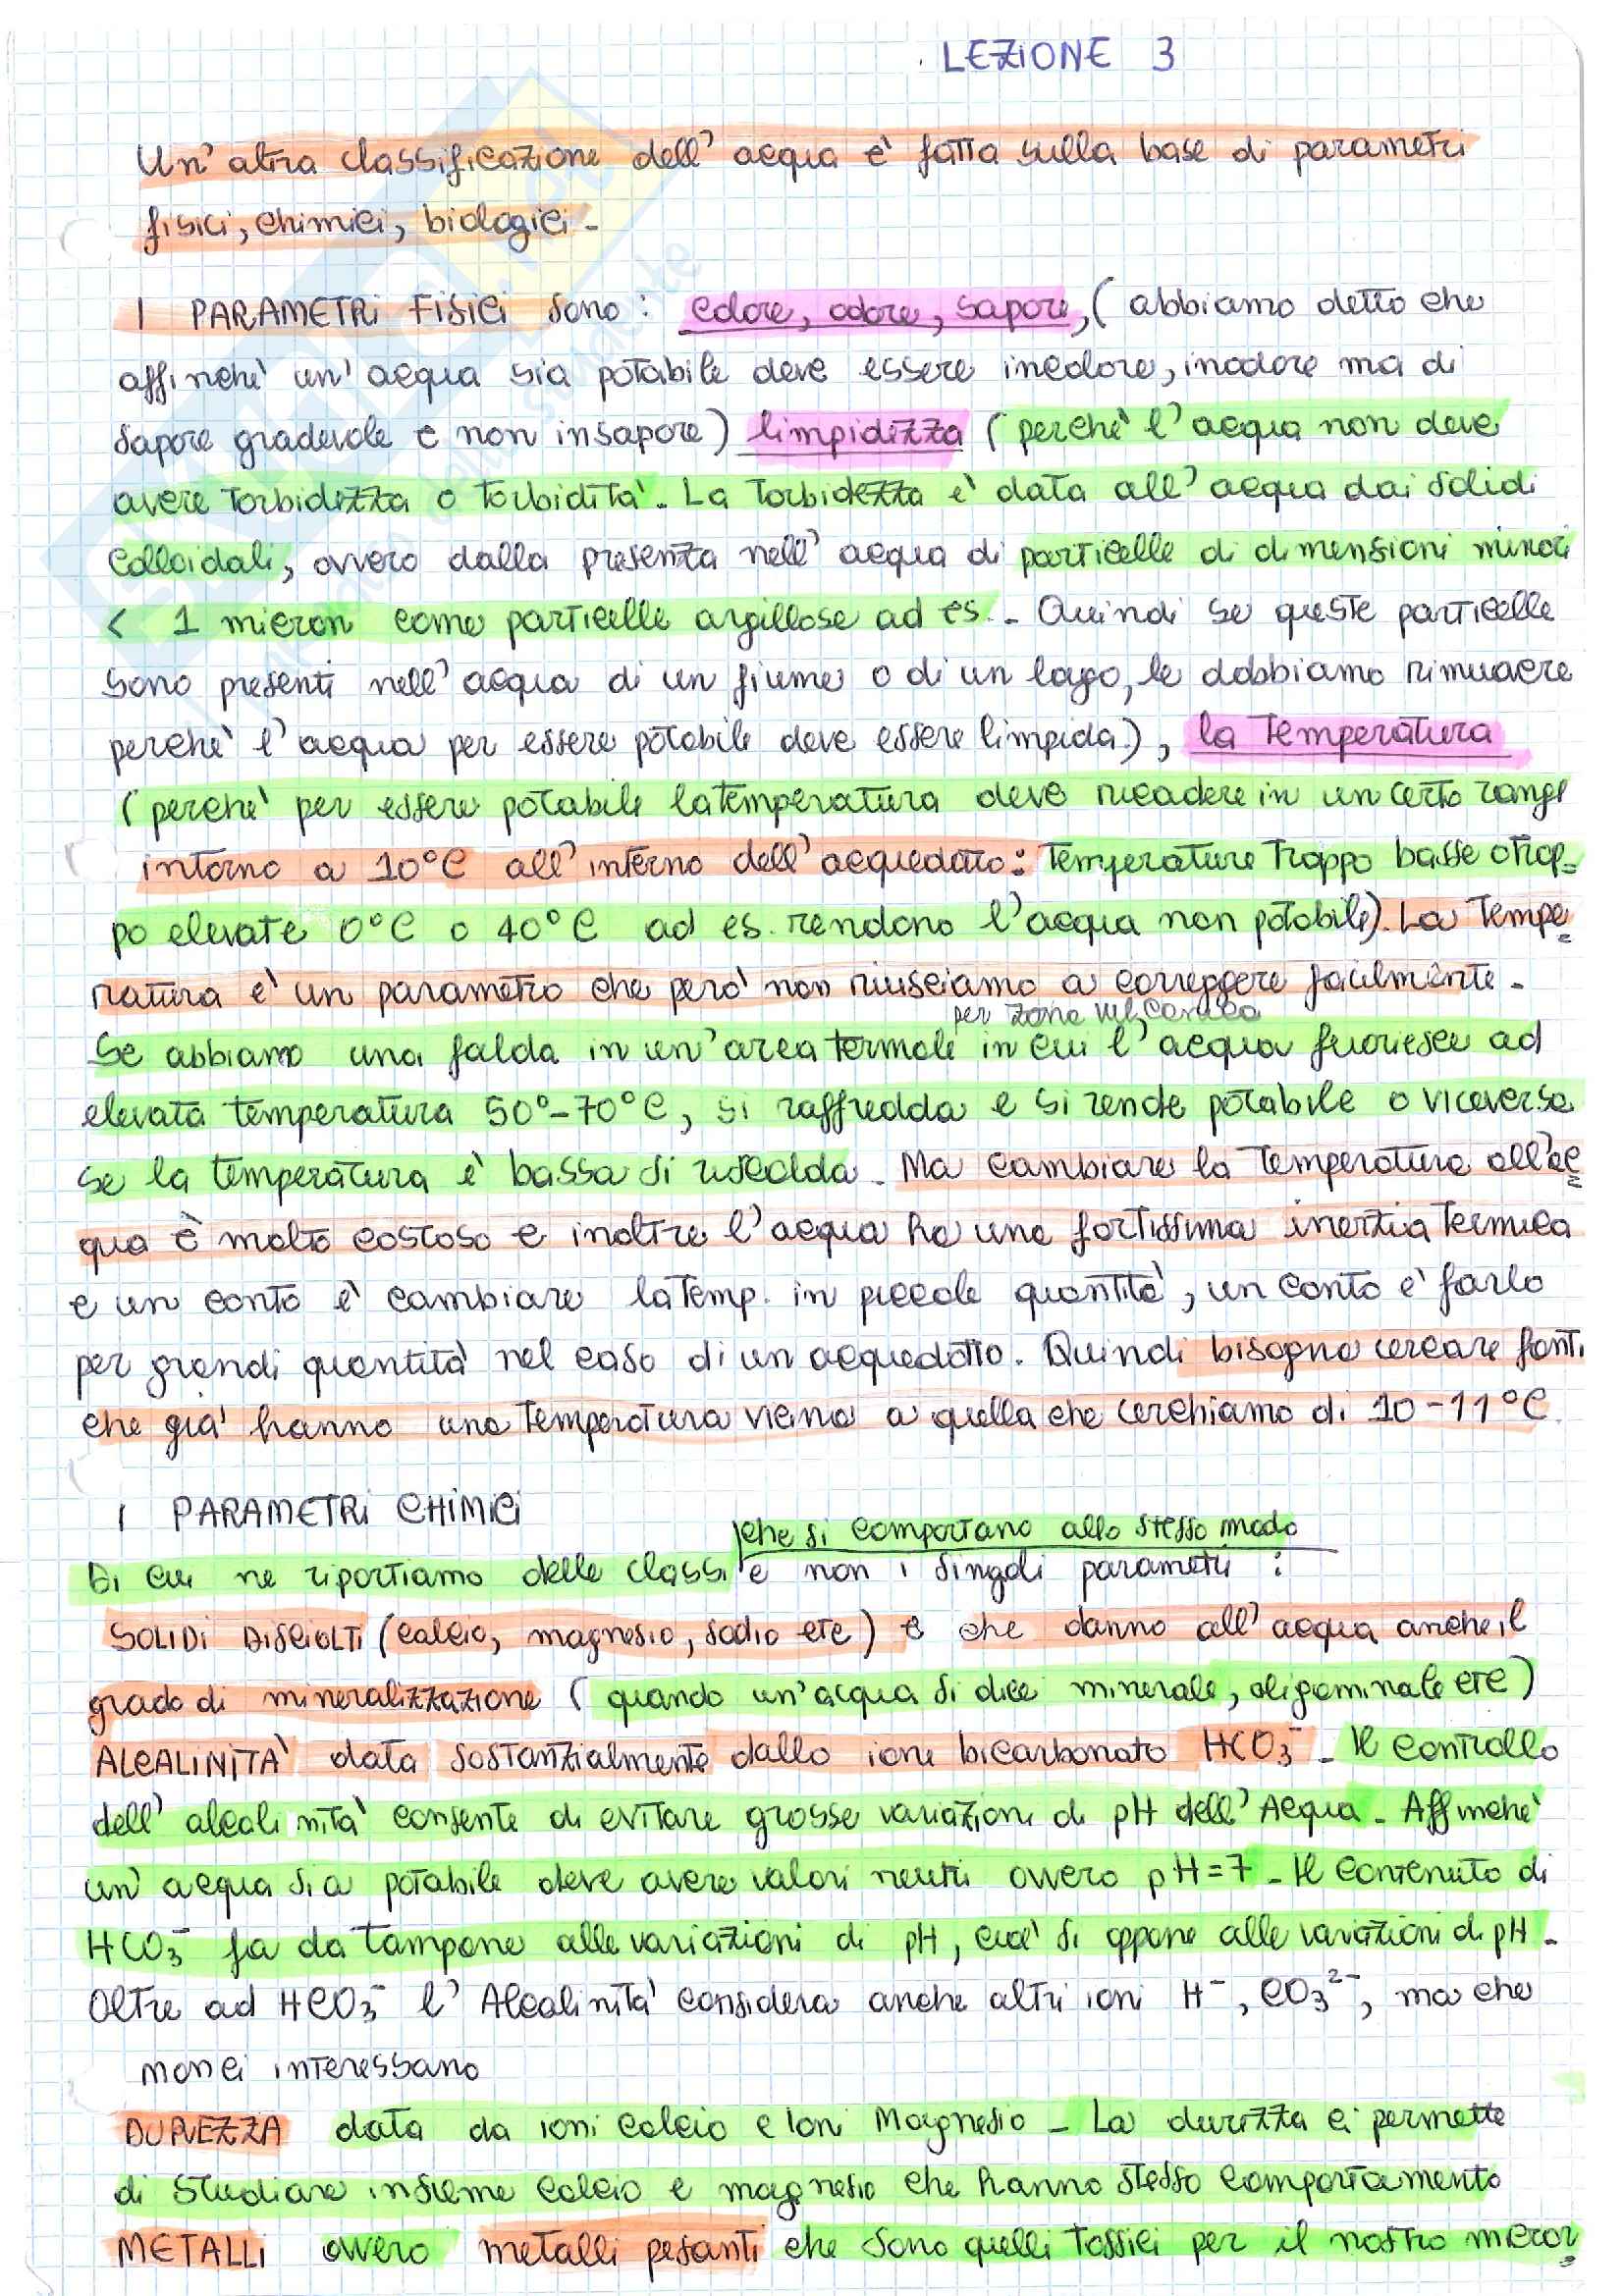 LEZIONE 3
Un' altra classificazione dell' acqua è fatta sulla base di parametri
fisici, chimici, biologici -
I PARAMETRI FISICI sono: colore, odore, sapore, (abbiamo detto che
affinché un' acqua sia potabile deve essere incolore, inodore ma di
sapore gradevole e non insapore) limpidezza (perché l' acqua non deve
avere torbidezza o torbidità. La torbidezza è data all' acqua dai solidi
colloidali, ovvero dalla presenza nell' acqua di particelle di dimensioni minori
< 1 micron come particelle argillose ad es. - Quindi se queste particelle
sono presenti nell' acqua di un fiume o di un lago, le dobbiamo rimuovere
perché l' acqua per essere potabile deve essere limpida.), la temperatura
(perché per essere potabile la temperatura deve ricadere in un certo range
intorno a 10°C all' interno dell' acquedotto: temperature troppo basse o trop-
po elevate 0°C o 40°C ad es. rendono l' acqua non potabile). La tempe
ratura è un parametro che però non riusciamo a correggere facilmente -
per zona vulcanica
Se abbiamo una falda in un' area termale in cui l' acqua fuoriesce ad
elevata temperatura 50°-70°C, si raffredda e si rende potabile o viceversa
se la temperatura è bassa si riscalda - Ma cambiare la temperatura all' ac
qua è molto costoso e inoltre l' acqua ha una fortissima inerzia termica
e un conto è cambiare la temp. in piccole quantità, un conto è farlo
per grandi quantità nel caso di un acquedotto. Quindi bisogna cercare fonti
che già hanno una temperatura vicina a quella che cerchiamo di 10-11°C.
I PARAMETRI CHIMICI
che si comportano allo stesso modo
Di cui ne riportiamo delle classi e non i singoli parametri:
SOLIDI DISCIOLTI (calcio, magnesio, sodio etc) e che danno all' acqua anche il
grado di mineralizzazione (quando un' acqua si dice minerale, oligominale etc)
ALCALINITÀ data sostanzialmente dallo ione bicarbonato HCO₃⁻ - Il controllo
dell' alcalinità consente di evitare grosse variazioni di pH dell' Acqua - Affinché
un' acqua sia potabile deve avere valori neutri ovvero pH=7 - Il contenuto di
HCO₃⁻ fa da tampone alle variazioni di pH, cioè si oppone alle variazioni di pH -
Oltre ad HCO₃⁻ l' Alcalinità considera anche altri ioni H⁻, CO₃²⁻, ma che
non ci interessano
DUREZZA data da ioni Calcio e Ioni Magnesio - La durezza ci permette
di studiare insieme calcio e magnesio che hanno stesso comportamento
METALLI ovvero metalli pesanti che sono quelli tossici per il nostro micror